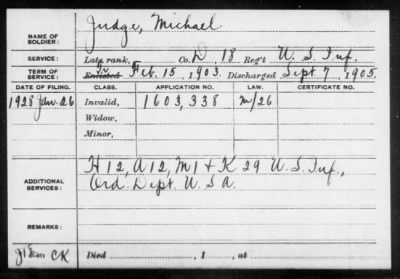 NAME OF SOLDIER: Judge, Michael
SERVICE: Late rank, Co. D, 18 Reg't U. S. Inf.
TERM OF SERVICE: Enlisted Feb. 15, 1903. Discharged Sept 7, 1905.
DATE OF FILING. CLASS. APPLICATION NO. LAW. CERTIFICATE NO.
1928 Jan. 26 Invalid, 1603,338 m/26
Widow,
Minor,
ADDITIONAL SERVICES: H 12, A 12, M 1 + K 29 U. S. Inf.,
Ord. Dept. U. S. A.
REMARKS:
CK Died , 1 , at